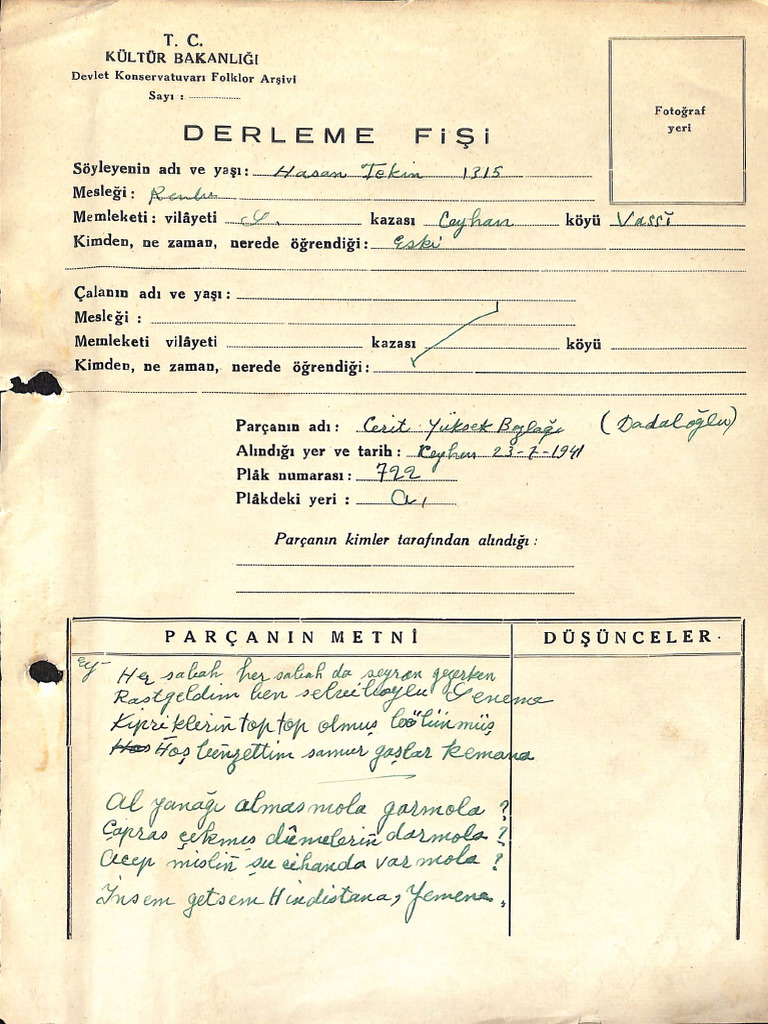 T. C.
KÜLTÜR BAKANLIĞI
Devlet Konservatuvarı Folklor Arşivi
Sayı :
Fotoğraf
yeri
DERLEME FİŞİ
Söyleyenin adı ve yaşı: Hasan Tekin 1315
Mesleği:
Memleketi: vilâyeti S. kazası Ceyhan köyü
Kimden, ne zaman, nerede öğrendiği: Eski
Çalanın adı ve yaşı:
Mesleği :
Memleketi vilâyeti kazası köyü
Kimden, ne zaman, nerede öğrendiği:
Parçanın adı: Cerit Yüksek Bozlağı (Dadaloğlu)
Alındığı yer ve tarih: Ceyhan 23-7-1941
Plâk numarası: 722
Plâkdeki yeri : a,
Parçanın kimler tarafından alındığı:
PARÇANIN METNİ
DÜŞÜNCELER.
Ey- Her sabah her sabah da seyran geçerken
Rastgeldim ben selvi boylu Senema
Kipriklerin top top olmuş bölünmüş
Hoş benzettim samur gaşlar kemana
Al yanağı almasmola garmola ?
Çapras çekmiş dümelerin darmola ?
Acep mislin şu cihanda varmola ?
İnsem getsem Hindistana, Yemene.